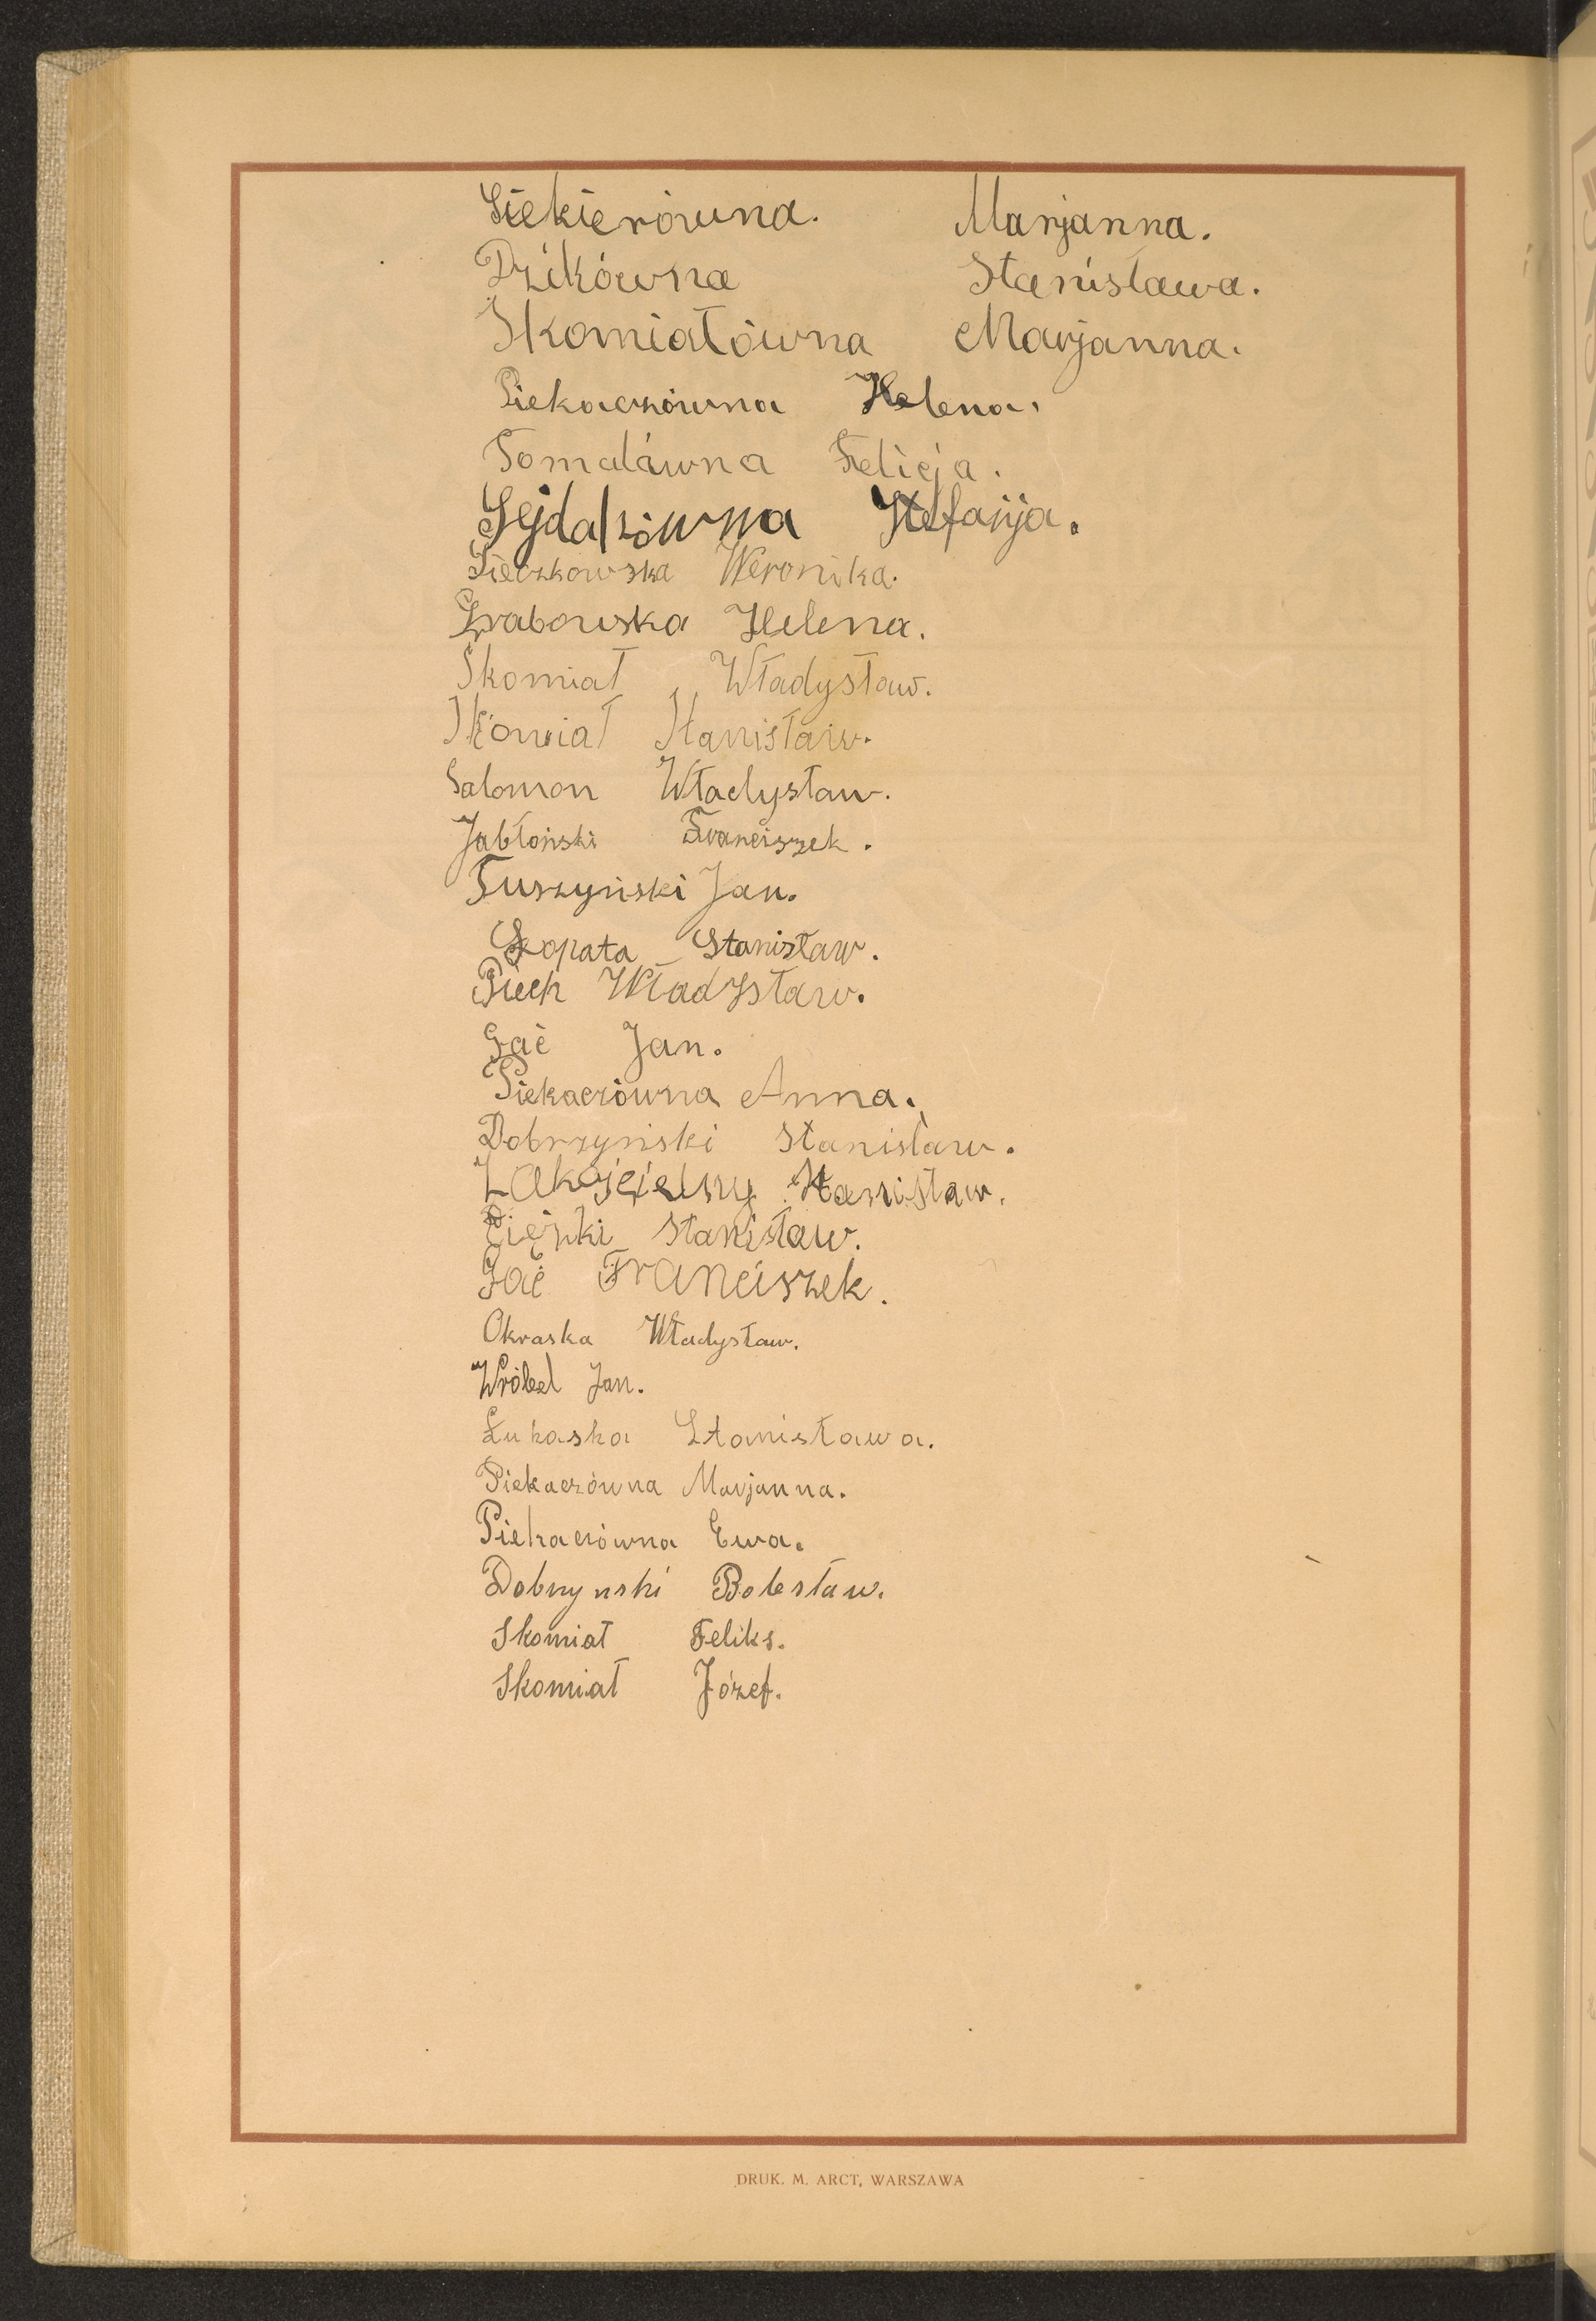 Siekierówna. Marjanna.
Dzikówna Stanisława.
Skomiałówna Marjanna.
Piekaczówna Helena.
Tomalówna Felicja.
Stefanja.
Sieczkowska Weronika.
Grabowska Helena.
Skomiał Władysław.
Skomiał Stanisław.
Salomon Władysław.
Jabłoński Franciszek.
Tuszyński Jan.
Łopata Stanisław.
Piech Władysław.
Gać Jan.
Piekaczówna Anna.
Dobrzyński Stanisław.
Stanisław.
Stanisław.
Gać Franciszek.
Okraska Władysław.
Wróbel Jan.
Łukaska Stanisława.
Piekaczówna Marjanna.
Piekaczówna Ewa.
Dobrzynski Bolesław.
Skomiał Feliks.
Skomiał Józef.
DRUK. M. ARCT, WARSZAWA